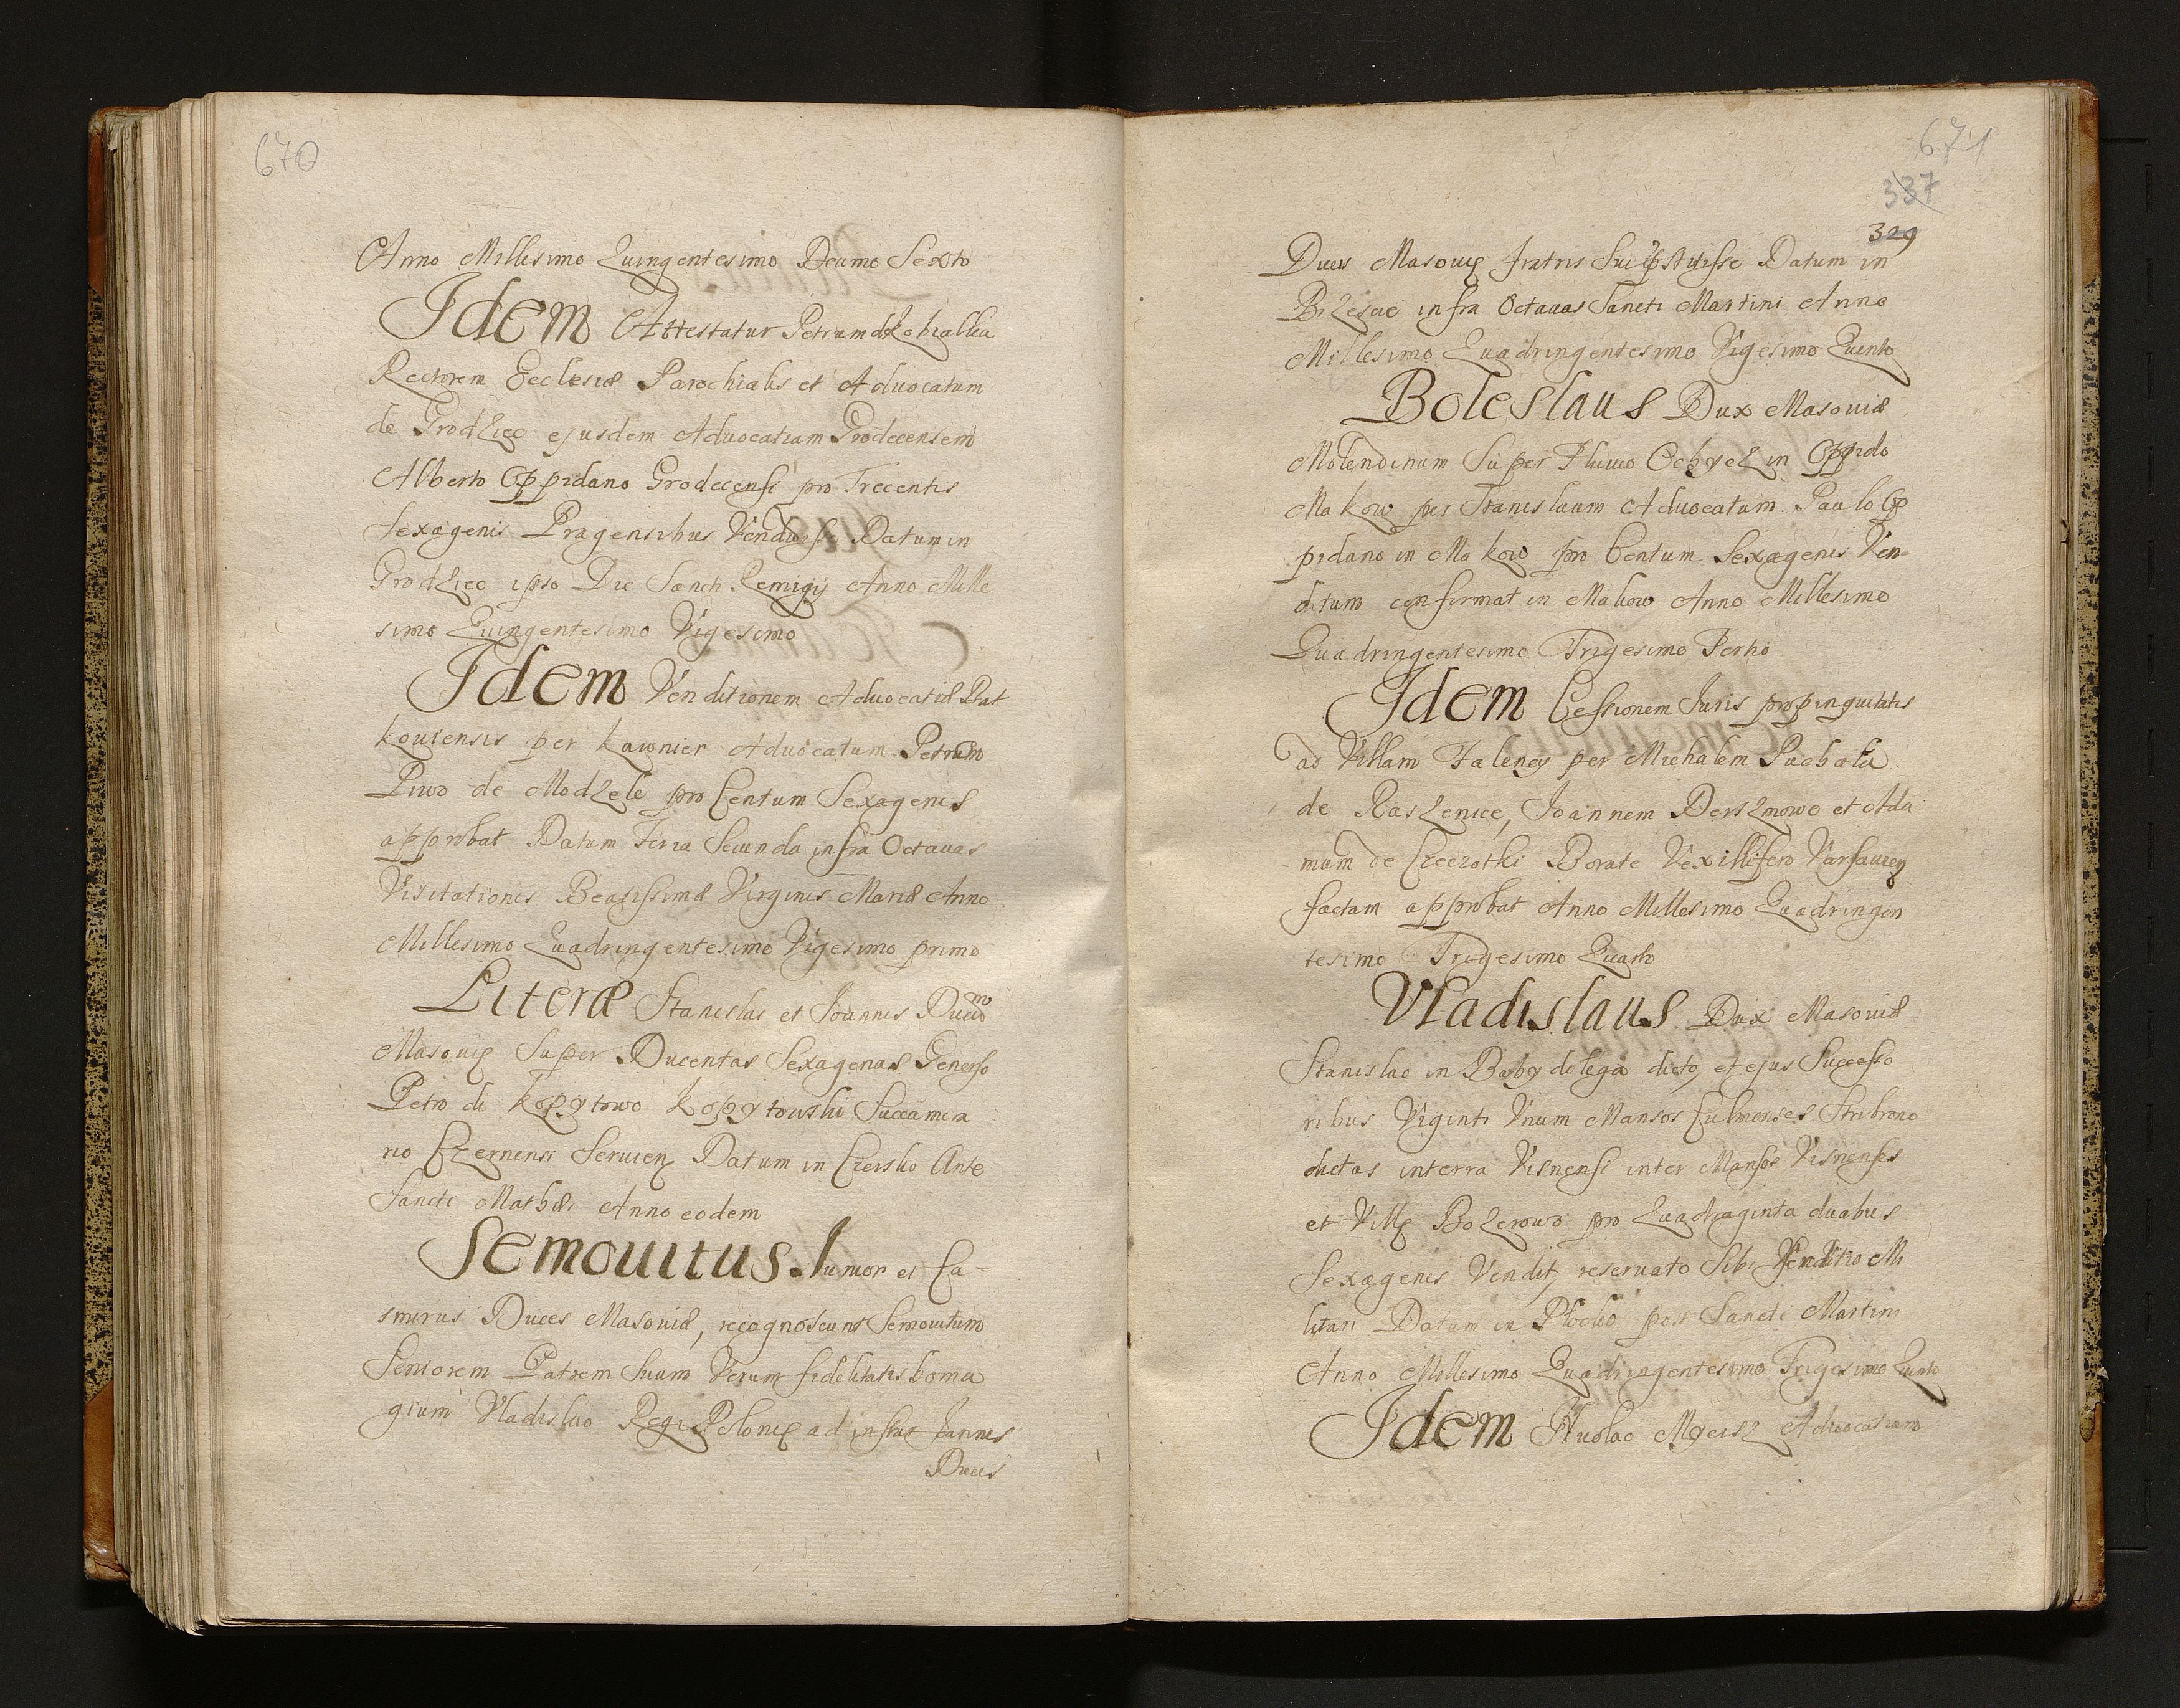 670
Anno Millesimo Quingentesimo Decimo Sexto
Idem Attestatur Petrum de
Rectorem Ecclesiæ Parochialis et Aduocatum
de Grodziec ejusdem Aduocatiam Grodecensem
Alberto Oppidano Grodecensi pro Trecentis
Sexagenis Pragensibus Vendidisse Datum in
Grodziec ipso Die Sancti Remigij Anno Mille
simo Quingentesimo Vigesimo
Idem Venditionem Aduocatiæ Rat
kouiensis per kawnier Aduocatum Petrum
Piwo de Modzele pro Centum Sexagenis
approbat Datum Feria Secunda infra Octauas
Visitationis Beatissimæ Virginis Mariæ Anno
Millesimo Quadringentesimo Vigesimo primo
Literæ Stanislai et Joannis Ducum
Masouię Super Ducentas Sexagenas Generoso
Petro de kopytowo kopytowski Succamera
rio Czernensi Seruien Datum in Czersko Ante
Sancti Mathæi Anno eodem
Semouitus Iunior et Ca-
smirus Duces Masouiæ, recognoscunt Semouitum
Seniorem Patrem Suum Verum fidelitatis homa
gium Vladislao Regi Polonię ad instar Joannis
Ducis
671
337
329
Ducis Masouię fratris Sui Datum in
Brzescie infra Octauas Sancti Martini Anno
Millesimo Quadringentesimo Vigesimo Quinto
Boleslaus Dux Masouiæ
Molendinum Super Fluuio in Oppido
Makow per Stanislaum Aduocatum Paulo Op
pidano in Makow pro Centum Sexagenis Ven-
ditum confirmat in Makow Anno Millesimo
Quadringentesimo Trigesimo Tertio
Idem Cessionem Juris propinquitatis
ad Villam Falency per Michalem Puchala
de Raszenice, Joannem Derszmowo et Ada
mum de Czeczotki Borate Vexillifero Varsauien
factam approbat Anno Millesimo Quadringen
tesimo Trigesimo Quarto
Vladislaus Dux Masouiæ
Stanislao in Babydolega dicto, et ejus Successo
ribus Viginti Vnum Mansos Culmenses Strubrono
dictas in terra Visnensi inter Mansos Visnenses
et Villę Bozerowo pro Quadraginta duabus
Sexagenis Vendit, reseruato Sibi Seruitio Mi
litari Datum in Plocko post Sancti Martini
Anno Millesimo Quadringentesimo Trigesimo Quinto
Idem Myeisz Aduocatiam